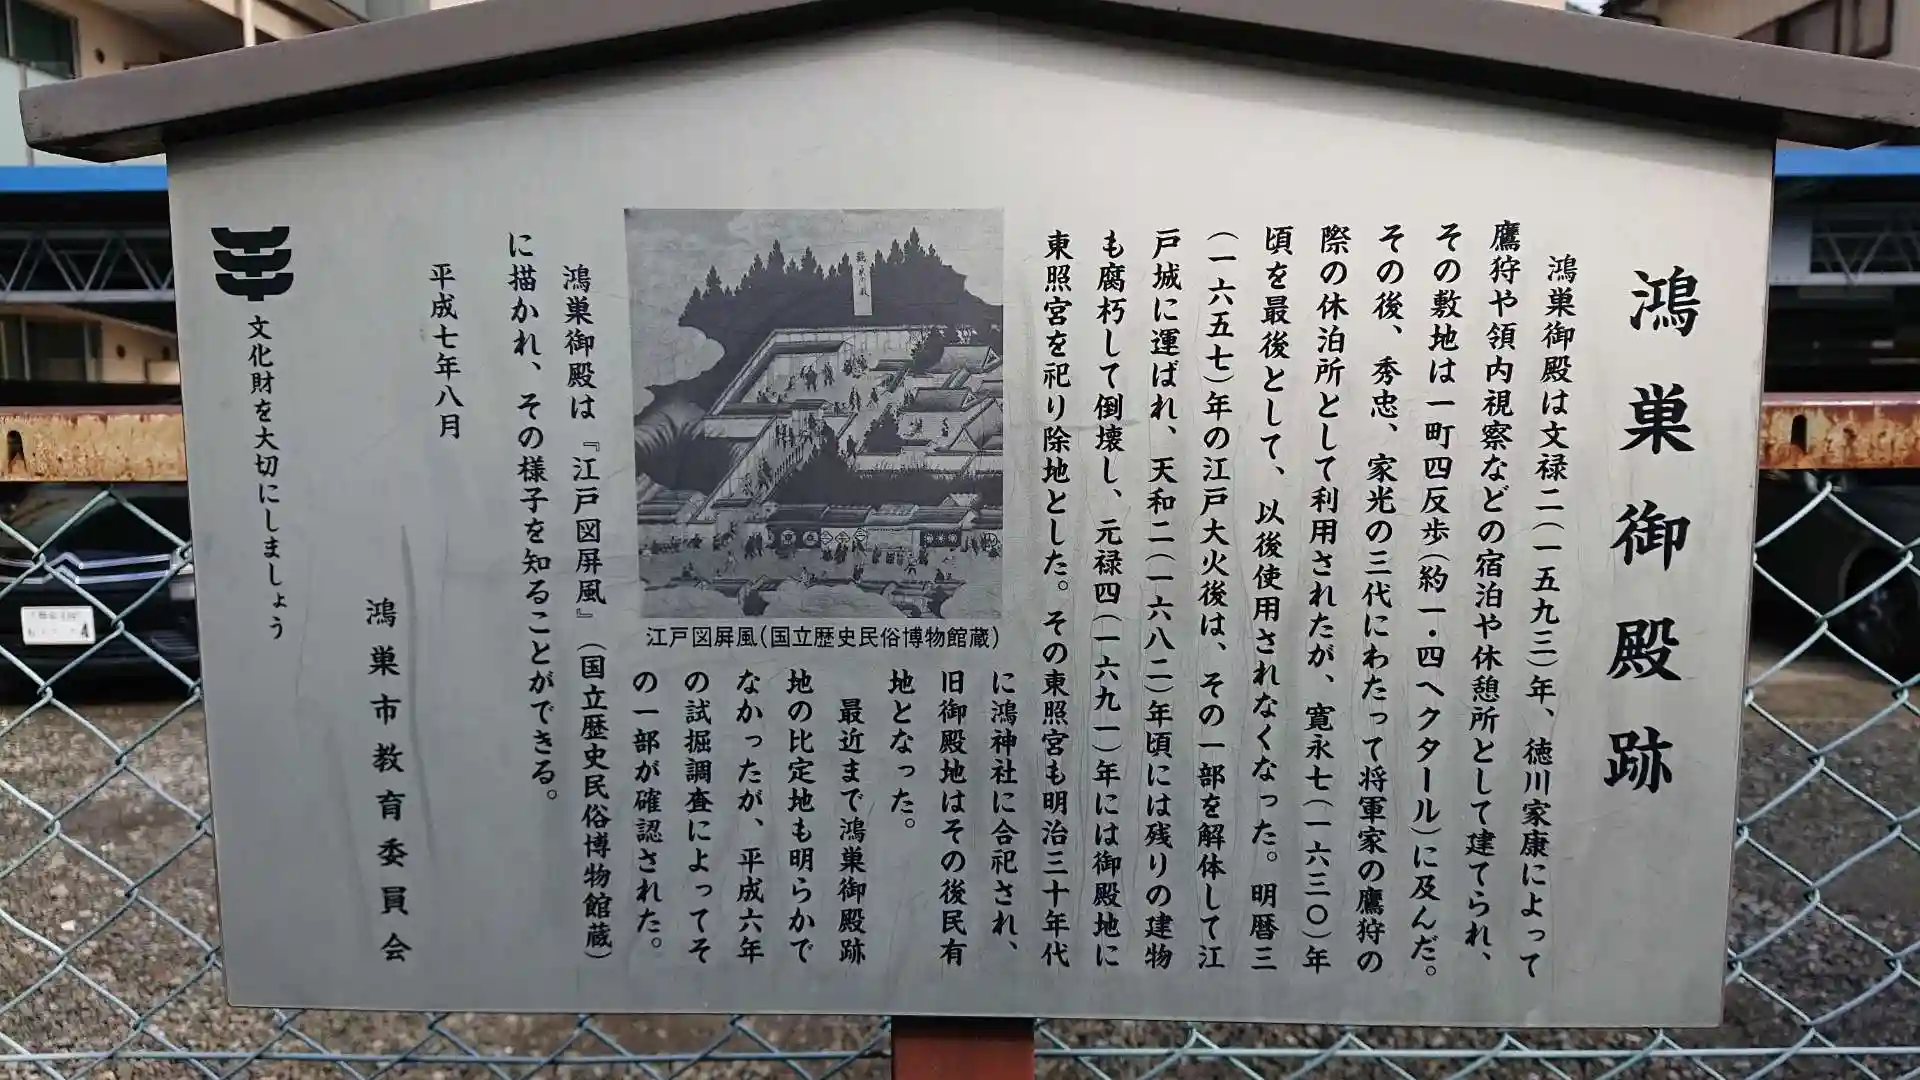 鴻巣御殿跡
鴻巣御殿は文禄二(一五九三)年、徳川家康によって
鷹狩や領内視察などの宿泊や休憩所として建てられ、
その敷地は一町四反歩(約一・四ヘクタール)に及んだ。
その後、秀忠、家光の三代にわたって将軍家の鷹狩の
際の休泊所として利用されたが、寛永七(一六三〇)年
頃を最後として、以後使用されなくなった。明暦三
(一六五七)年の江戸大火後は、その一部を解体して江
戸城に運ばれ、天和二(一六八二)年頃には残りの建物
も腐朽して倒壊し、元禄四(一六九一)年には御殿地に
東照宮を祀り除地とした。その東照宮も明治三十年代
に鴻神社に合祀され、
旧御殿地はその後民有
地となった。
最近まで鴻巣御殿跡
地の比定地も明らかで
なかったが、平成六年
の試掘調査によってそ
の一部が確認された。
江戸図屏風(国立歴史民俗博物館蔵)
鴻巣御殿は『江戸図屏風』(国立歴史民俗博物館蔵)
に描かれ、その様子を知ることができる。
平成七年八月
鴻巣市教育委員会
文化財を大切にしましょう